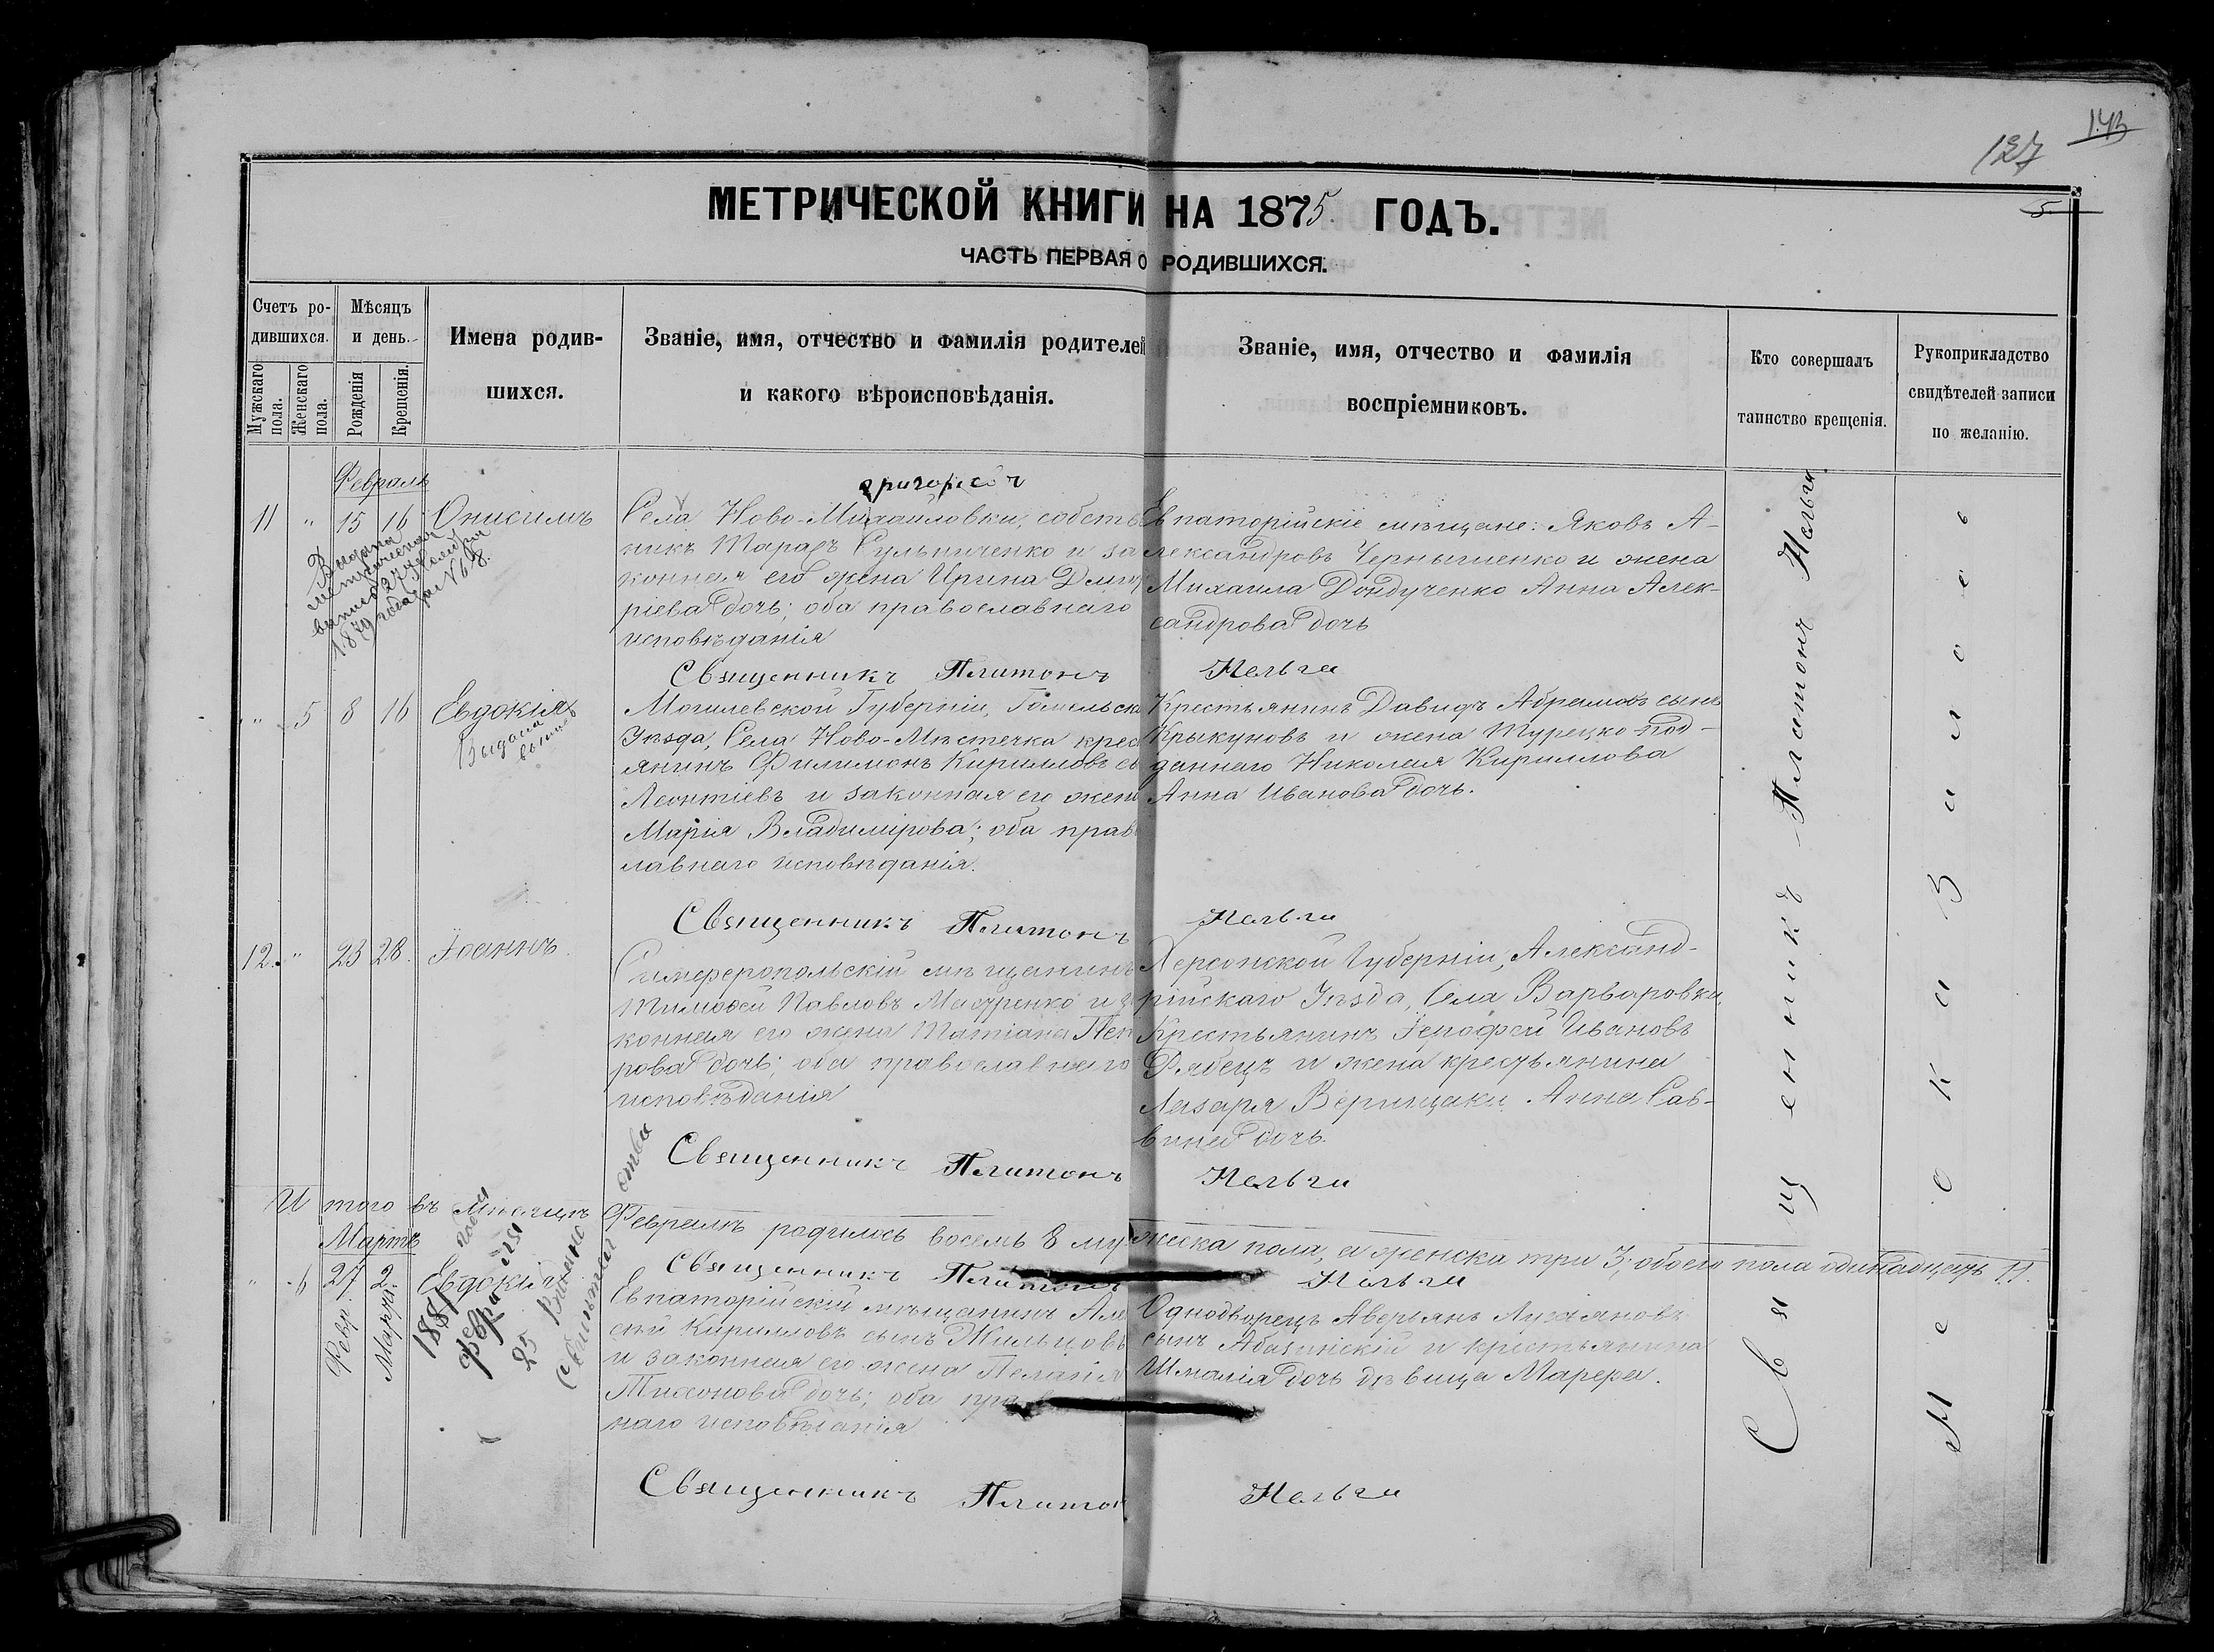 143
127
5
МЕТРИЧЕСКОЙ КНИГИ НА 1875 ГОДЪ.
ЧАСТЬ ПЕРВАЯ О РОДИВШИХСЯ.
Счетъ ро-
дившихся.
Мужскаго пола.
Женскаго пола.
Мѣсяцъ
и день.
Рожденія
Крещенія.
Имена родив-
шихся.
Званіе, имя, отчество и фамилія родителей
и какого вѣроисповѣданія.
Званіе, имя, отчество и фамилія
воспріемниковъ.
Кто совершалъ
таинство крещенія.
Рукоприкладство
свидѣтелей записи
по желанію.
Февраль
11 " 15 16 Онисимъ
Выдана
метрическая
выпись 27 Ноября
1879 года за № 68.
григорьевъ
Села Ново-Михайловки, собств
никъ Тарасъ Сульниченко и за
конная его жена Ирина Дмит
ріева дочь; оба православнаго
исповѣданія
Евпаторійскіе мѣщане: Яковъ А-
лександровъ Чернышенко и жена
Михаила Дондученко Анна Алек-
сандрова дочь
Священникъ Платонъ
" 5 8 16 Евдокія
Выдана
Могилевской Губерніи, Гомельска
Уѣзда, Села Ново-Мѣстечка крес
янинъ Филимонъ Кирилловъ с
Леонтіевъ и законная его жена
Марія Владимірова; оба право
лавнаго исповѣданія.
Крестьянинъ Давидъ Абрамовъ сынъ
Крыкуновъ и жена Турецко-под-
даннаго Николая Кириллова
Анна Иванова дочь.
Священникъ Платонъ
12. " 23 28. Іоаннъ.
Симферопольскій мѣщанинъ
Тимофей Павловъ Мазуренко и за
конная его жена Татіана Пет
рова дочь; оба православнаго
исповѣданія
Херсонской Губерніи, Александ-
рійскаго Уѣзда, Села Варваровки
Крестьянинъ Ерофей Ивановъ
Рябецъ и жена крестьянина
Лазаря Верищаки Анна Сав-
вина дочь.
Священникъ Платонъ
И того въ мѣсяцѣ Февралѣ родилось восемь 8 мужеска пола, а женска три 3; обоего пола одинадцать 11.
Священникъ Платонъ
Мартъ
" 6 27 2 Евдокія
Февр. Марта
1881 года
Февраля
25 Выдано
Свидѣтельства
Евпаторійскій мѣщанинъ Але
сѣй Кирилловъ сынъ Жильцовъ
и законная его жена Пелагія
Тихонова дочь; оба прав
наго исповѣданія
Однодворецъ Аверьянъ Лукіяновъ
сынъ Абазинскій и крестьянина
дочь дѣвица Марфа.
Священникъ Платон
Священникъ Платонъ
Не оказалось